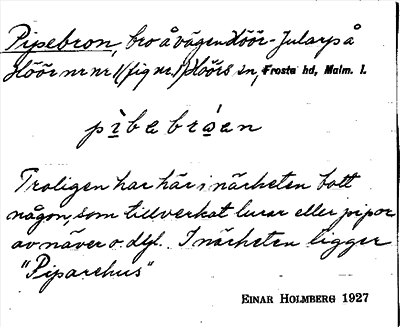 Pipebron, bro å vägen Höör - Jularp å
Höör nr nr 1 (fig nr 1) Höörs sn, Frosta hd, Malm. l.
pìbabróan
Troligen har här i närheten bott
någon, som tillverkat lurar eller pipor
av näver o. dyl. I närheten ligger
"Piparehus"
EINAR HOLMBERG 1927